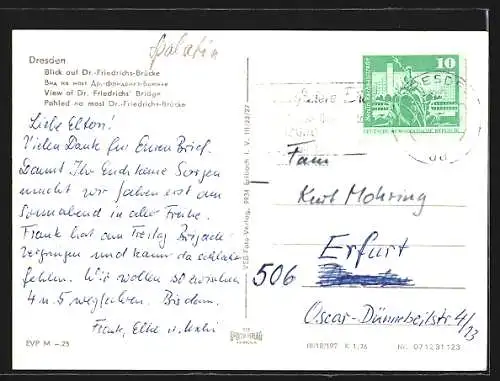 Dresden
Blick auf Dr.-Friedrichs-Brücke
Вид на мост Др.-Фридрихс-Брюкке
View of Dr. Friedrichs' Bridge
Pohled na most Dr.-Friedrich-Brücke
10
DEUTSCHE DEMOKRATISCHE REPUBLIK
Liebe Eltern!
Vielen Dank für Euren Brief.
Damit Ihr Euch keine Sorgen
macht wir fahren erst am
Sonnabend in aller Frühe.
Frank hat am Freitag
und kann da schlecht
fehlen. Wir wollen so zwischen
4 u. 5 wegfahren. Bis dann.
Frank, Elke u.
VEB Foto-Verlag, 9934 Erlbach i. V. III/23/27
Fam
Kurt Mohring
Erfurt
506
Oscar-Dünnebeilstr 4/13
EVP M –.25
K 1/76
Nr. 071231123